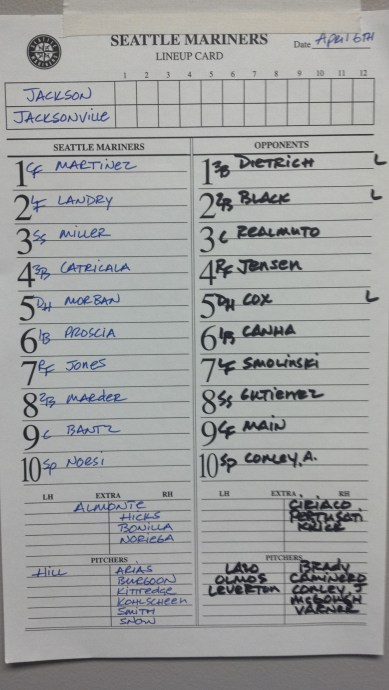 SEATTLE MARINERS
LINEUP CARD
Date April 6TH
1 2 3 4 5 6 7 8 9 10 11 12
JACKSON
JACKSONVILLE
SEATTLE MARINERS
1 CF MARTINEZ
2 LF LANDRY
3 SS MILLER
4 3B CATRICALA
5 DH MORBAN
6 1B PROSCIA
7 RF JONES
8 2B MARDER
9 C BANTZ
10 SP NOESI
LH EXTRA RH
ALMONTE
HICKS
BONILLA
NORIEGA
PITCHERS
HILL ARIAS
BURGOON
KITTREDGE
KOHLSCHEEN
SMITH
SNOW
OPPONENTS
1 3B DIETRICH L
2 2B BLACK L
3 C REALMUTO
4 RF JENSEN
5 DH COX L
6 1B CANHA
7 LF SMOLINSKI
8 SS GUTIERREZ
9 CF MAIN
10 SP CONLEY, A.
LH EXTRA RH
CIRIACO
KRICK
PITCHERS
LASO BRADY
OLMOS CAMINERO
LEVERTON CONLEY, J
MCGOUGH
VARNER